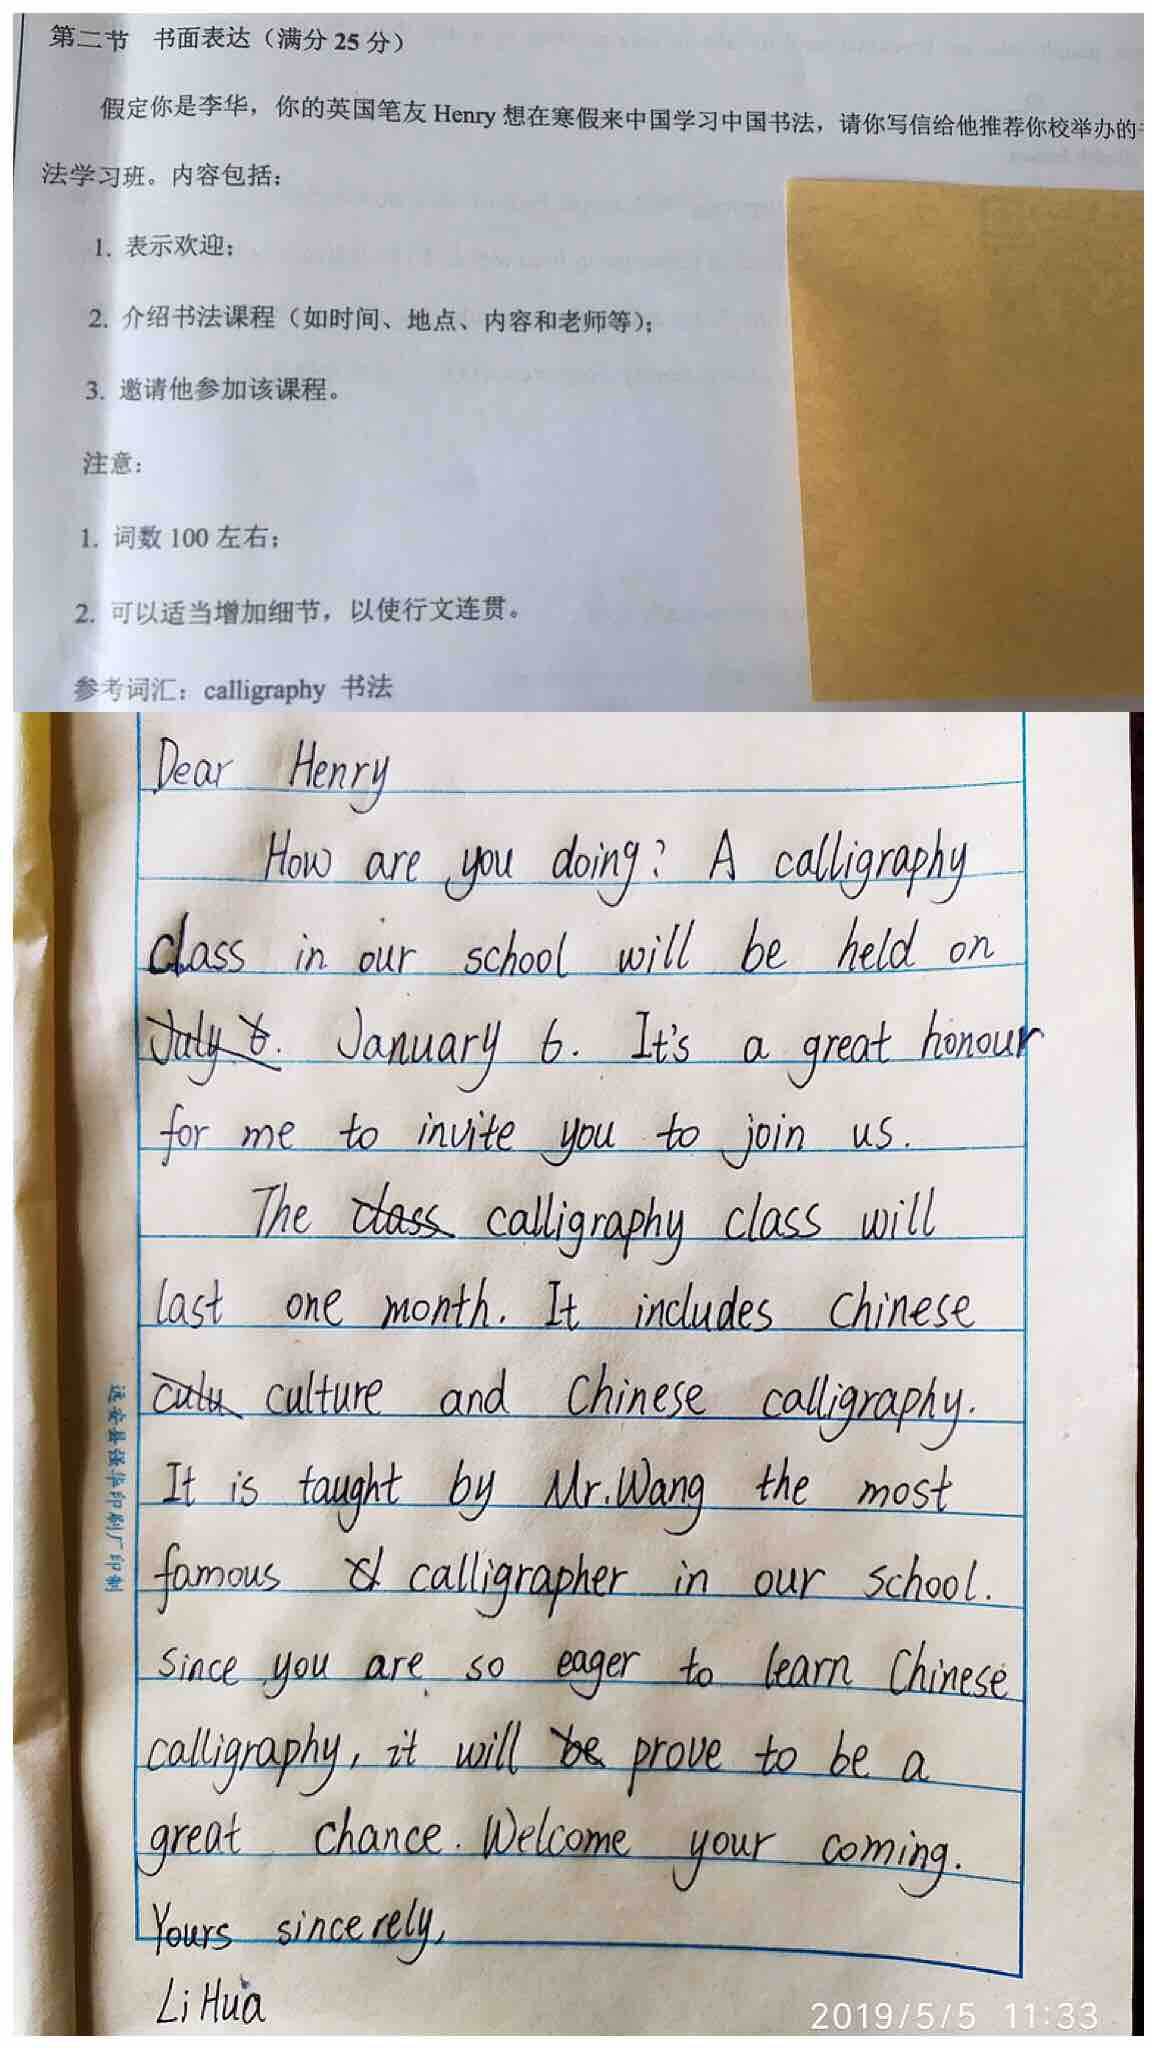 第二节 书面表达（满分 25 分）
假定你是李华，你的英国笔友 Henry 想在寒假来中国学习中国书法，请你写信给他推荐你校举办的
法学习班。内容包括：
1. 表示欢迎；
2. 介绍书法课程（如时间、地点、内容和老师等）；
3. 邀请他参加该课程。
注意：
1. 词数 100 左右；
2. 可以适当增加细节，以使行文连贯。
参考词汇：calligraphy 书法
Dear Henry
How are you doing? A calligraphy
class in our school will be held on
July 6. January 6. It's a great honour
for me to invite you to join us.
The class calligraphy class will
last one month. It includes Chinese
culu culture and Chinese calligraphy.
It is taught by Mr.Wang the most
famous calligrapher in our school.
Since you are so eager to learn Chinese
calligraphy, it will be prove to be a
great chance. Welcome your coming.
Yours sincerely,
Li Hua
远安县强华印刷厂印制
2019/5/5 11:33